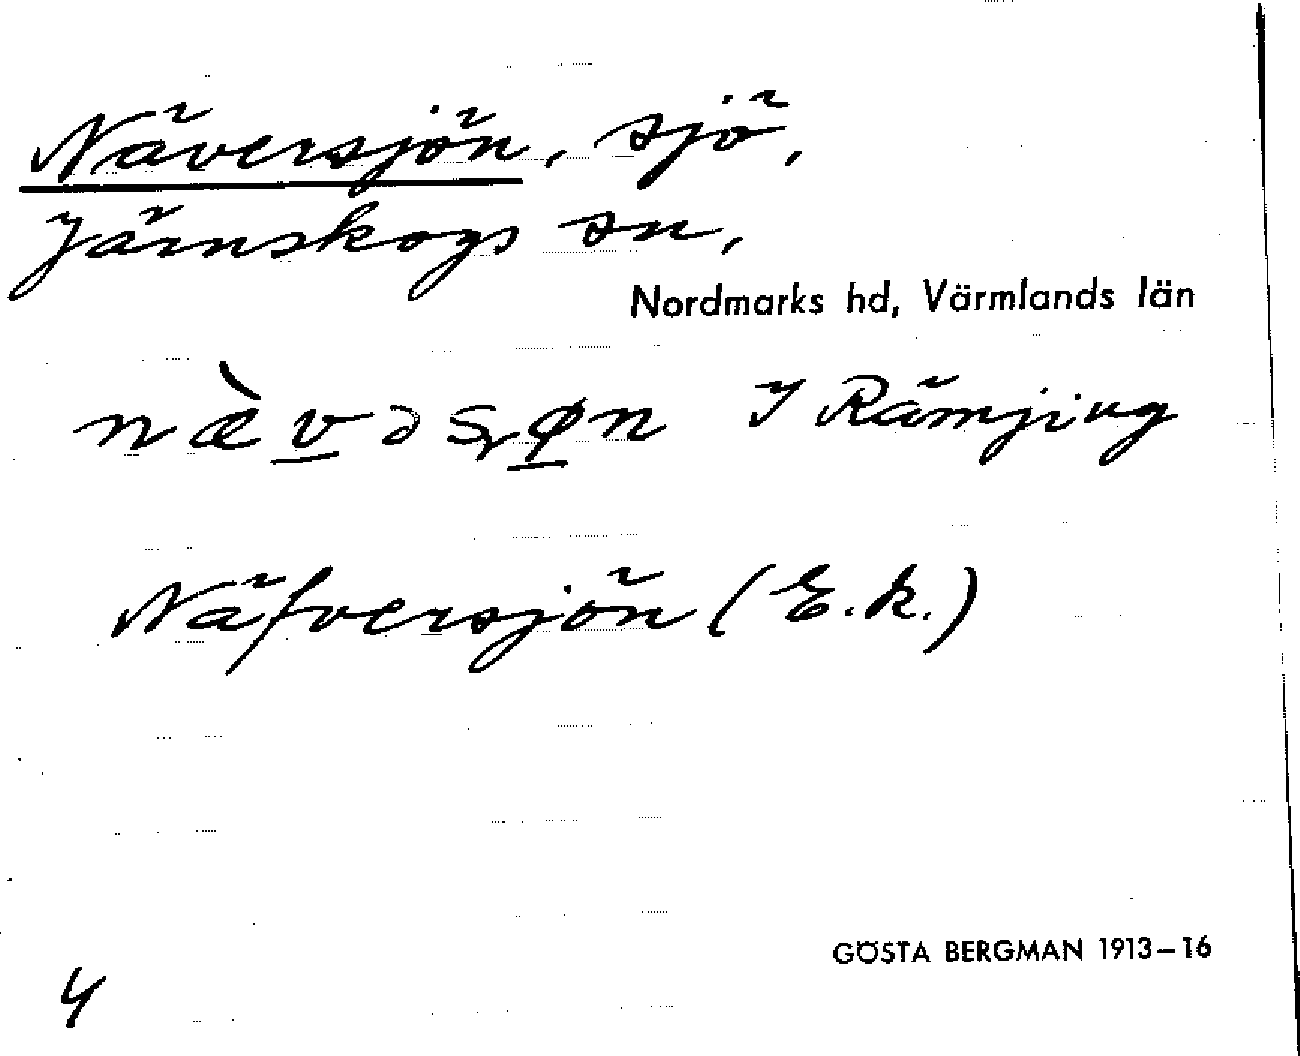 Näversjön, sjö,
Järnskogs sn,
Nordmarks hd, Värmlands län
nævəsφn I Rämjing
Näfversjön (E.k.)
GÖSTA BERGMAN 1913–16
4